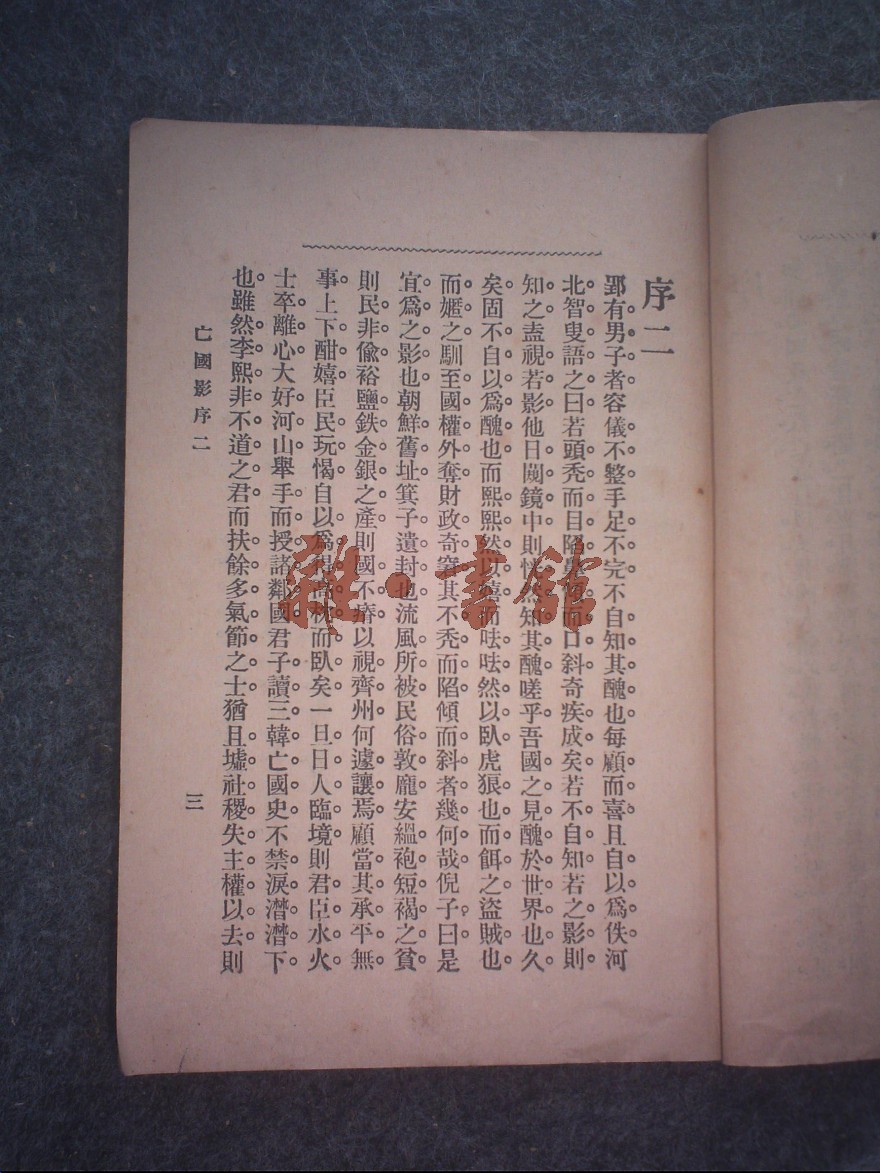 序二
郢有男子者容儀不整手足不完不自知其醜也每顧而喜且自以爲佚河
北智叟語之曰若頭禿而目陷鼻傾而口斜奇疾成矣若不自知若之影則
知之盍視若影他日闖鏡中則恍然知其醜嗟乎吾國之見醜於世界也久
矣固不自以爲醜也而熙熙然以嬉而呿呿然以臥虎狼也而餌之盜賊也
而嬺之馴至國權外奪財政奇窘其不禿而陷傾而斜者幾何哉倪子曰是
宜爲之影也朝鮮舊址箕子遺封也流風所被民俗敦龐安縕袍短褐之貧
則民非偷裕鹽鉄金銀之產則國不瘠以視齊州何遽讓焉顧當其承平無
事上下酣嬉臣民玩愒自以爲得高枕而臥矣一旦日人臨境則君臣水火
士卒離心大好河山舉手而授諸鄰國君子讀三韓亡國史不禁淚潸潸下
也雖然李熙非不道之君而扶餘多氣節之士猶且墟社稷失主權以去則
亡國影序二
三
雜·書館